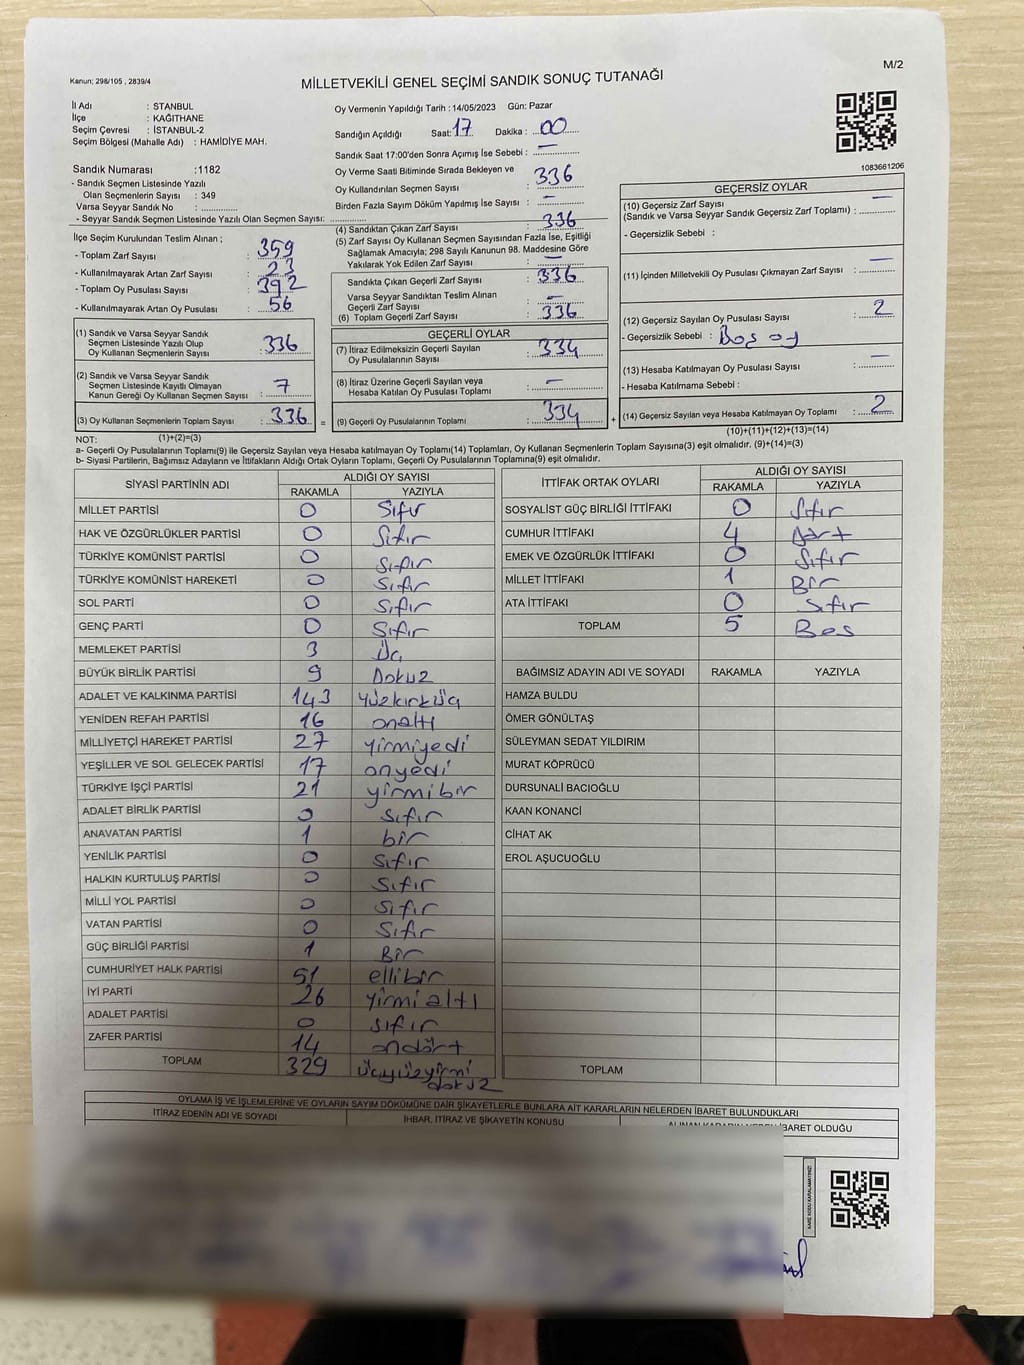 M/2
Kanun; 298/105 , 2839/4
MİLLETVEKİLİ GENEL SEÇİMİ SANDIK SONUÇ TUTANAĞI
İl Adı : İSTANBUL
İlçe : KAĞITHANE
Seçim Çevresi : İSTANBUL-2
Seçim Bölgesi (Mahalle Adı) : HAMİDİYE MAH.
Sandık Numarası :1182
- Sandık Seçmen Listesinde Yazılı
Olan Seçmenlerin Sayısı : 349
Varsa Seyyar Sandık No : ..............
- Seyyar Sandık Seçmen Listesinde Yazılı Olan Seçmen Sayısı: ..............
Oy Vermenin Yapıldığı Tarih : 14/05/2023 Gün: Pazar
Sandığın Açıldığı Saat: 17 Dakika : 00
Sandık Saat 17:00'den Sonra Açımış İse Sebebi : —
Oy Verme Saati Bitiminde Sırada Bekleyen ve
Oy Kullandırılan Seçmen Sayısı : 336
Birden Fazla Sayım Döküm Yapılmış İse Sayısı : —
1083661206
İlçe Seçim Kurulundan Teslim Alınan ;
- Toplam Zarf Sayısı : 359
- Kullanılmayarak Artan Zarf Sayısı : 23
- Toplam Oy Pusulası Sayısı : 392
- Kullanılmayarak Artan Oy Pusulası : 56
(1) Sandık ve Varsa Seyyar Sandık
Seçmen Listesinde Yazılı Olup
Oy Kullanan Seçmenlerin Sayısı : 336
(2) Sandık ve Varsa Seyyar Sandık
Seçmen Listesinde Kayıtlı Olmayan
Kanun Gereği Oy Kullanan Seçmen Sayısı : 7
(3) Oy Kullanan Seçmenlerin Toplam Sayısı : 336
(1)+(2)=(3)
(4) Sandıktan Çıkan Zarf Sayısı : 336
(5) Zarf Sayısı Oy Kullanan Seçmen Sayısından Fazla İse, Eşitliği
Sağlamak Amacıyla; 298 Sayılı Kanunun 98. Maddesine Göre
Yakılarak Yok Edilen Zarf Sayısı : —
Sandıkta Çıkan Geçerli Zarf Sayısı : 336
Varsa Seyyar Sandıktan Teslim Alınan
Geçerli Zarf Sayısı : —
(6) Toplam Geçerli Zarf Sayısı : 336
GEÇERLİ OYLAR
(7) İtiraz Edilmeksizin Geçerli Sayılan
Oy Pusulalarının Sayısı : 334
(8) İtiraz Üzerine Geçerli Sayılan veya
Hesaba Katılan Oy Pusulası Toplamı : —
= (9) Geçerli Oy Pusulalarının Toplamı : 334 +
GEÇERSİZ OYLAR
(10) Geçersiz Zarf Sayısı
(Sandık ve Varsa Seyyar Sandık Geçersiz Zarf Toplamı) : —
- Geçersizlik Sebebi :
(11) İçinden Milletvekili Oy Pusulası Çıkmayan Zarf Sayısı : —
(12) Geçersiz Sayılan Oy Pusulası Sayısı : 2
- Geçersizlik Sebebi : Boş oy
(13) Hesaba Katılmayan Oy Pusulası Sayısı : —
- Hesaba Katılmama Sebebi :
(14) Geçersiz Sayılan veya Hesaba Katılmayan Oy Toplamı : 2
(10)+(11)+(12)+(13)=(14)
NOT:
a- Geçerli Oy Pusulalarının Toplamı(9) ile Geçersiz Sayılan veya Hesaba katılmayan Oy Toplamı(14) Toplamları, Oy Kullanan Seçmenlerin Toplam Sayısına(3) eşit olmalıdır. (9)+(14)=(3)
b- Siyasi Partilerin, Bağımsız Adayların ve İttifakların Aldığı Ortak Oyların Toplamı, Geçerli Oy Pusulalarının Toplamına(9) eşit olmalıdır.
SİYASİ PARTİNİN ADI ALDIĞI OY SAYISI
RAKAMLA YAZIYLA
MİLLET PARTİSİ 0 Sıfır
HAK VE ÖZGÜRLÜKLER PARTİSİ 0 Sıfır
TÜRKİYE KOMÜNİST PARTİSİ 0 Sıfır
TÜRKİYE KOMÜNİST HAREKETİ 0 Sıfır
SOL PARTİ 0 Sıfır
GENÇ PARTİ 0 Sıfır
MEMLEKET PARTİSİ 3 Üç
BÜYÜK BİRLİK PARTİSİ 9 Dokuz
ADALET VE KALKINMA PARTİSİ 143 yüzkırküç
YENİDEN REFAH PARTİSİ 16 onaltı
MİLLİYETÇİ HAREKET PARTİSİ 27 yirmiyedi
YEŞİLLER VE SOL GELECEK PARTİSİ 17 onyedi
TÜRKİYE İŞÇİ PARTİSİ 21 yirmibir
ADALET BİRLİK PARTİSİ 0 sıfır
ANAVATAN PARTİSİ 1 bir
YENİLİK PARTİSİ 0 sıfır
HALKIN KURTULUŞ PARTİSİ 0 Sıfır
MİLLİ YOL PARTİSİ 0 Sıfır
VATAN PARTİSİ 0 Sıfır
GÜÇ BİRLİĞİ PARTİSİ 1 Bir
CUMHURİYET HALK PARTİSİ 51 ellibir
İYİ PARTİ 26 yirmialtı
ADALET PARTİSİ 0 sıfır
ZAFER PARTİSİ 14 ondört
TOPLAM 329 üçyüzyirmi
dokuz
İTTİFAK ORTAK OYLARI ALDIĞI OY SAYISI
RAKAMLA YAZIYLA
SOSYALİST GÜÇ BİRLİĞİ İTTİFAKI 0 Sıfır
CUMHUR İTTİFAKI 4 Dört
EMEK VE ÖZGÜRLÜK İTTİFAKI 0 Sıfır
MİLLET İTTİFAKI 1 Bir
ATA İTTİFAKI 0 Sıfır
TOPLAM 5 Beş
BAĞIMSIZ ADAYIN ADI VE SOYADI RAKAMLA YAZIYLA
HAMZA BULDU
ÖMER GÖNÜLTAŞ
SÜLEYMAN SEDAT YILDIRIM
MURAT KÖPRÜCÜ
DURSUNALİ BACIOĞLU
KAAN KONANCİ
CİHAT AK
EROL AŞUCUOĞLU
TOPLAM
OYLAMA İŞ VE İŞLEMLERİNE VE OYLARIN SAYIM DÖKÜMÜNE DAİR ŞİKAYETLERLE BUNLARA AİT KARARLARIN NELERDEN İBARET BULUNDUKLARI
İTİRAZ EDENİN ADI VE SOYADI İHBAR, İTİRAZ VE ŞİKAYETİN KONUSU İBARET OLDUĞU